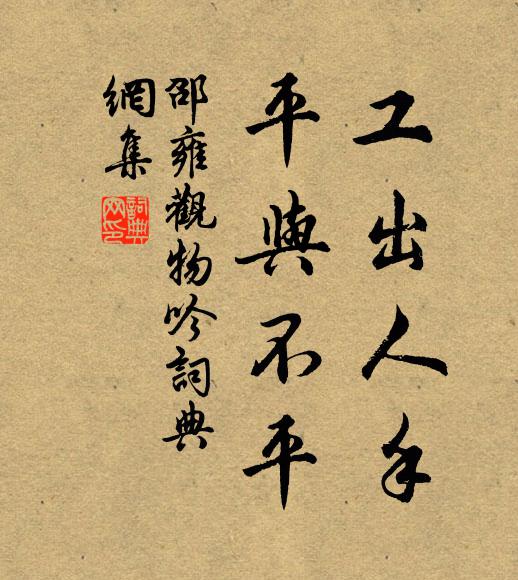 工出人手
平與不平
邵雍觀物吟詞典
網集
詞典
网印